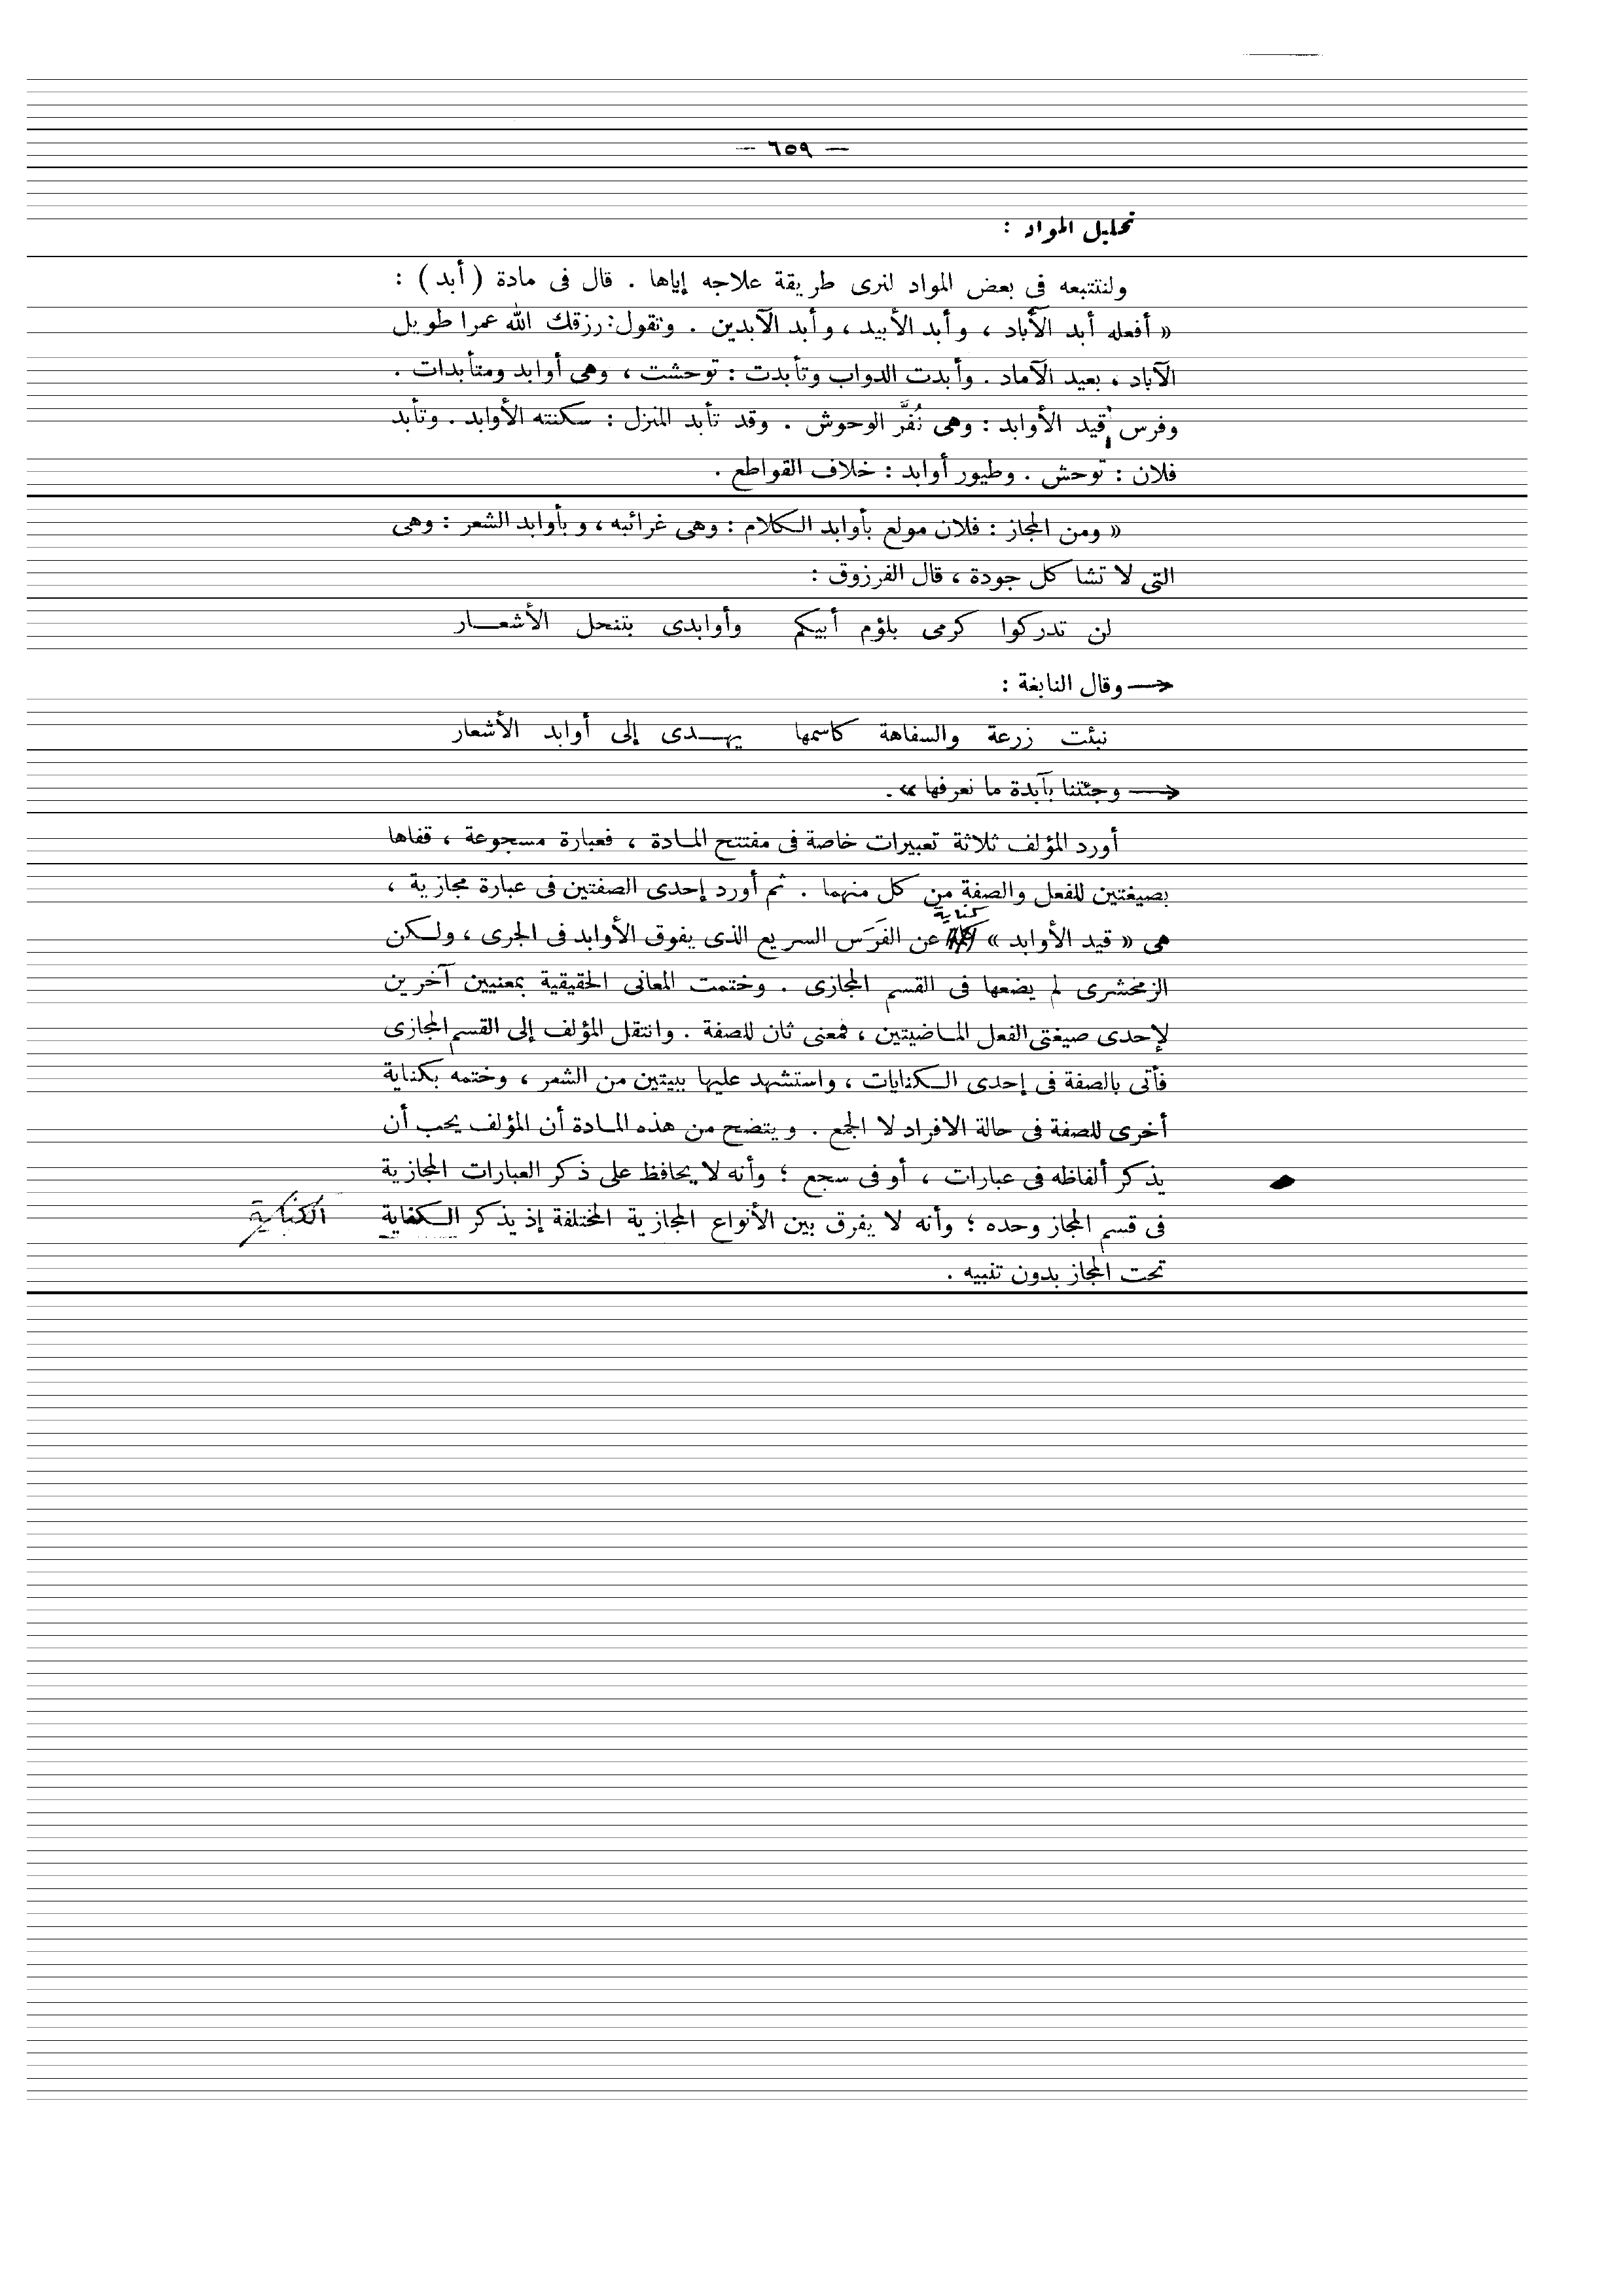 — ٦٥٩ —
تحليل المواد :
ولنتتبعه فى بعض المواد لنرى طريقة علاجه إياها . قال فى مادة ( أبد ) :
« أفعله أبد الآباد ، وأبد الأبيد ، وأبد الآبدين . وتقول : رزقك الله عمرا طويل
الآباد ، بعيد الآماد . وأبدت الدواب وتأبدت : توحشت ، وهى أوابد ومتأبدات .
وفرس قيد الأوابد : وهى نُفَّر الوحوش . وقد تأبد المنزل : سكنته الأوابد . وتأبد
فلان : توحش . وطيور أوابد : خلاف القواطع .
« ومن المجاز : فلان مولع بأوابد الكلام : وهى غرائبه ، وبأوابد الشعر : وهى
التى لا تشاكل جودة ، قال الفرزوق :
لن تدركوا كرمى بلؤم أبيكم وأوابدى بتنحل الأشعــار
وقال النابغة :
نبئت زرعة والسفاهة كاسمها يهــدى إلى أوابد الأشعار
وجئتنا بآبدة ما نعرفها » .
أورد المؤلف ثلاثة تعبيرات خاصة فى مفتتح المـادة ، فعبارة مسجوعة ، قفاها
بصيغتين للفعل والصفة من كل منهما . ثم أورد إحدى الصفتين فى عبارة مجازية ،
كناية
هى « قيد الأوابد » عن الفَرَس السريع الذى يفوق الأوابد فى الجرى ، ولـكن
الزمخشرى لم يضعها فى القسم المجازى . وختمت المعانى الحقيقية بمعنيين آخرين
لإحدى صيغتى الفعل المـاضيتين ، فمعنى ثان للصفة . وانتقل المؤلف إلى القسم المجازى
فأتى بالصفة فى إحدى الـكنايات ، واستشهد عليها ببيتين من الشعر ، وختمه بكناية
أخرى للصفة فى حالة الافراد لا الجمع . ويتضح من هذه المـادة أن المؤلف يحب أن
يذكر ألفاظه فى عبارات ، أو فى سجع ؛ وأنه لا يحافظ على ذكر العبارات المجازية
فى قسم المجاز وحده ؛ وأنه لا يفرق بين الأنواع المجازية المختلفة إذ يذكر الـكفاية الكناية
تحت المجاز بدون تنبيه .